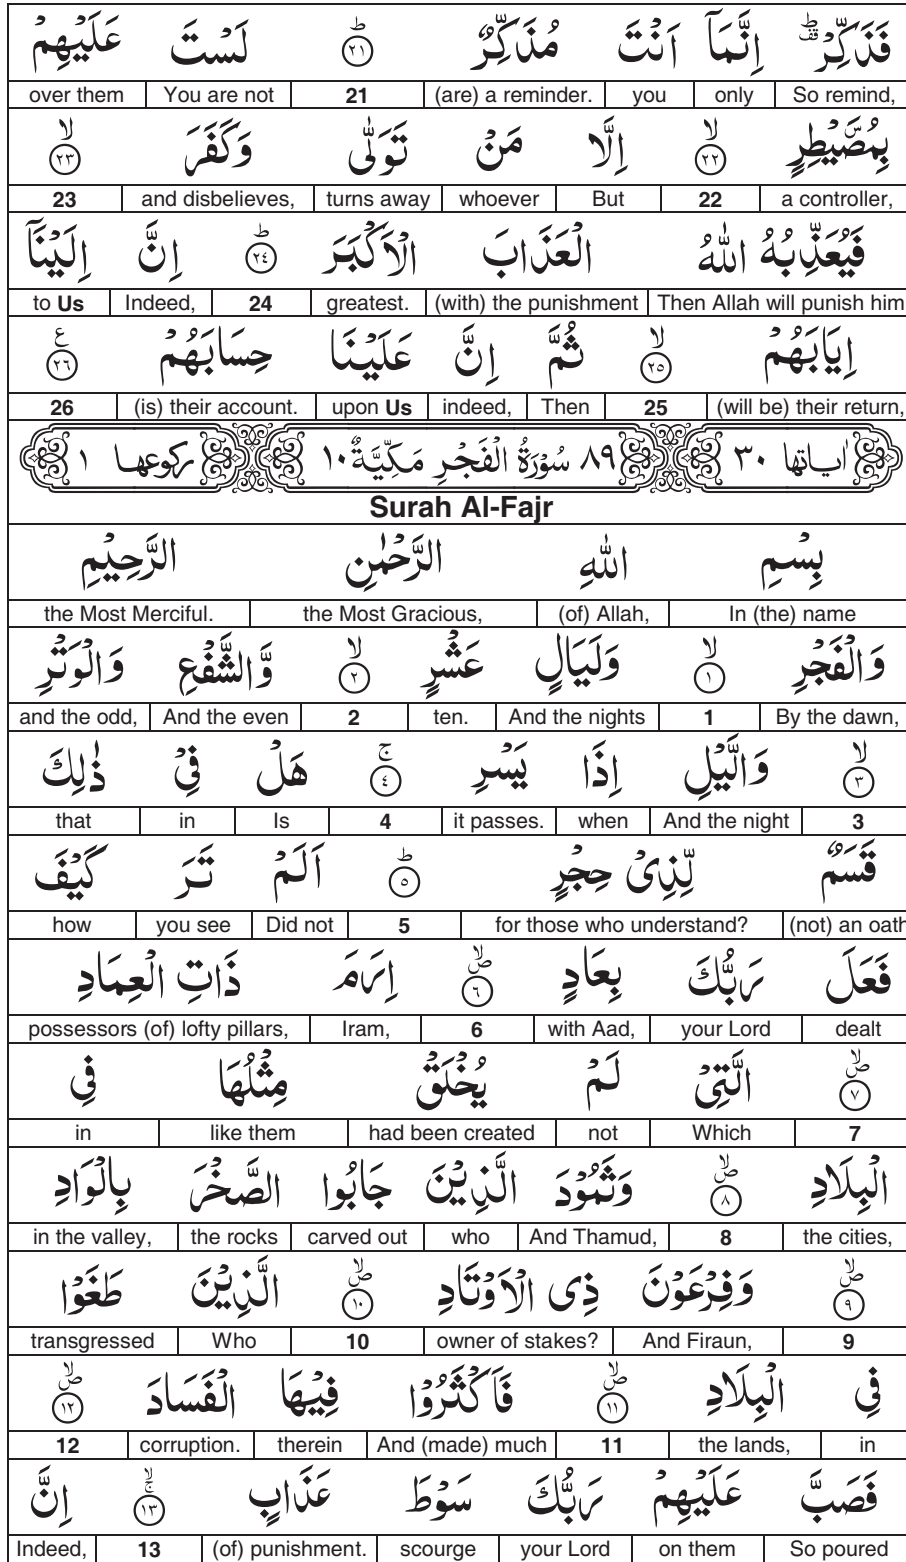 فَذَكِّرْ ۟ؕ اِنَّمَاۤ اَنْتَ مُذَكِّرٌ ؕ ﴿۲۱﴾ لَسْتَ عَلَيْهِمْ
So remind, only you (are) a reminder. 21 You are not over them
بِمُصَۜيْطِرٍ ۙ ﴿۲۲﴾ اِلَّا مَنْ تَوَلّٰى وَكَفَرَ ۙ ﴿۲۳﴾
a controller, 22 But whoever turns away and disbelieves, 23
فَيُعَذِّبُهُ اللّٰهُ الْعَذَابَ الْاَكْبَرَ ؕ ﴿۲٤﴾ اِنَّ اِلَيْنَاۤ
Then Allah will punish him (with) the punishment greatest. 24 Indeed, to Us
اِيَابَهُمْ ۙ ﴿۲٥﴾ ثُمَّ اِنَّ عَلَيْنَا حِسَابَهُمْ ﴿۲٦﴾ ع
(will be) their return, 25 Then indeed, upon Us (is) their account. 26
اٰياتها ٣٠ ٨٩ سُوْرَةُ الْفَجْرِ مَكِّيَّةٌ ١٠ ركوعها ١
Surah Al-Fajr
بِسْمِ اللّٰهِ الرَّحْمٰنِ الرَّحِيْمِ
In (the) name (of) Allah, the Most Gracious, the Most Merciful.
وَالْفَجْرِ ۙ ﴿۱﴾ وَلَيَالٍ عَشْرٍ ۙ ﴿۲﴾ وَّالشَّفْعِ وَالْوَتْرِ
By the dawn, 1 And the nights ten. 2 And the even and the odd,
ۙ ﴿۳﴾ وَالَّيْلِ اِذَا يَسْرِ ۚ ﴿٤﴾ هَلْ فِيْ ذٰلِكَ
3 And the night when it passes. 4 Is in that
قَسَمٌ لِّذِيْ حِجْرٍ ؕ ﴿٥﴾ اَلَمْ تَرَ كَيْفَ
(not) an oath for those who understand? 5 Did not you see how
فَعَلَ رَبُّكَ بِعَادٍ ۙ ۪ ﴿٦﴾ اِرَمَ ذَاتِ الْعِمَادِ
dealt your Lord with Aad, 6 Iram, possessors (of) lofty pillars,
ۙ ۪ ﴿۷﴾ الَّتِيْ لَمْ يُخْلَقْ مِثْلُهَا فِي
7 Which not had been created like them in
الْبِلَادِ ۙ ۪ ﴿۸﴾ وَثَمُوْدَ الَّذِيْنَ جَابُوا الصَّخْرَ بِالْوَادِ
the cities, 8 And Thamud, who carved out the rocks in the valley,
ۙ ۪ ﴿۹﴾ وَفِرْعَوْنَ ذِى الْاَوْتَادِ ۙ ۪ ﴿۱۰﴾ الَّذِيْنَ طَغَوْا
9 And Firaun, owner of stakes? 10 Who transgressed
فِي الْبِلَادِ ۙ ۪ ﴿۱۱﴾ فَاَكْثَرُوْا فِيْهَا الْفَسَادَ ۙ ۪ ﴿۱۲﴾
in the lands, 11 And (made) much therein corruption. 12
فَصَبَّ عَلَيْهِمْ رَبُّكَ سَوْطَ عَذَابٍ ۙ ۚ ﴿۱۳﴾ اِنَّ
So poured on them your Lord scourge (of) punishment. 13 Indeed,